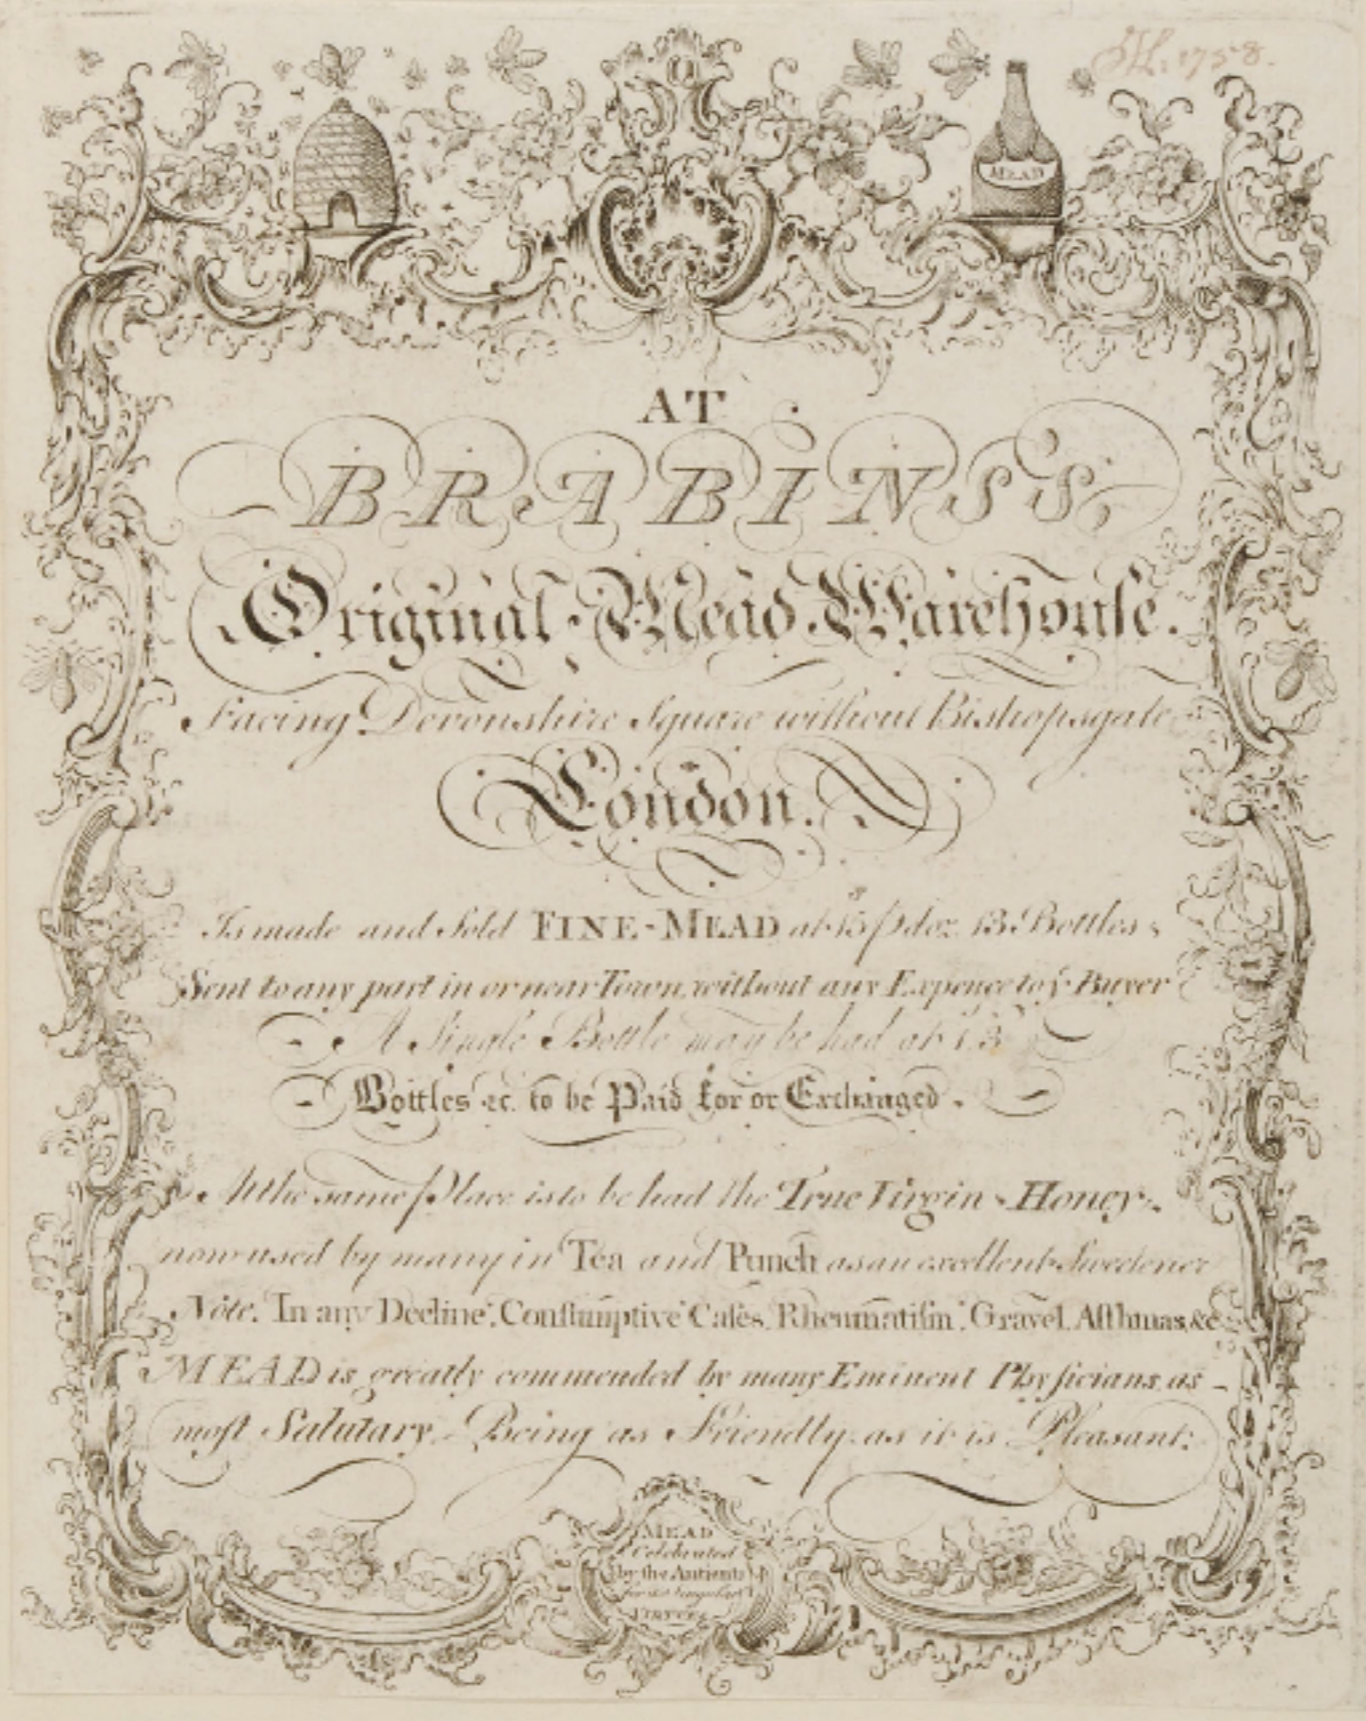 1758.
MEAD
AT
BRABINS'S
Original Mead Warehouſe.
Facing Devonshire Square without Bishopsgate
London.
Is made and Sold FINE-MEAD at 15ˢ p doz. 13 Bottles;
Sent to any part in or near Town, without any Expence to yᵉ Buyer
A Single Bottle may be had at 1.3
Bottles &c. to be Paid for or Exchanged.
At the same Place is to be had the True Virgin-Honey,
now used by many in Tea and Punch as an excellent Sweetener
Note. In any Decline, Conſumptive Caſes, Rheumatiſm, Gravel, Aſthmas, &c
MEAD is greatly commended by many Eminent Phyſicians, as
moſt Salutary. Being as Friendly as it is Pleasant:
MEAD
Celebrated
by the Antients
for its Singular
VIRTUES